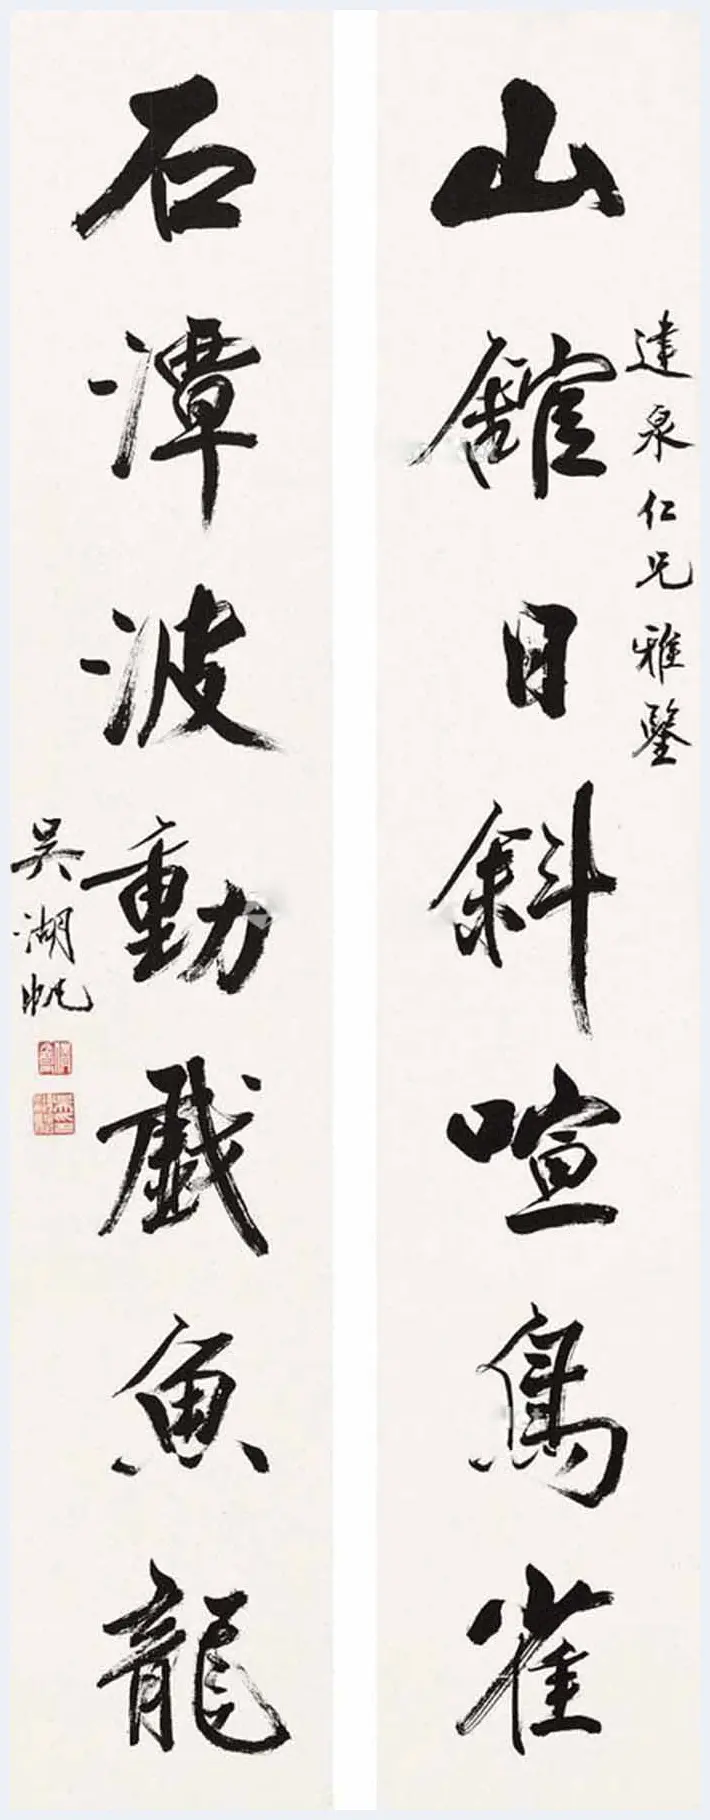 山館日斜喧鳥雀
達泉仁兄雅鑒
石潭波動戲魚龍
吳湖帆